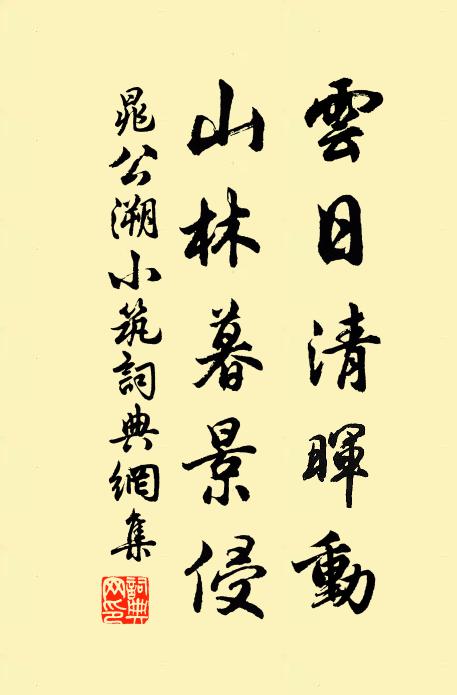 雲日清暉動
山林暮景侵
晁公溯小筑詞典網集
詞典網印